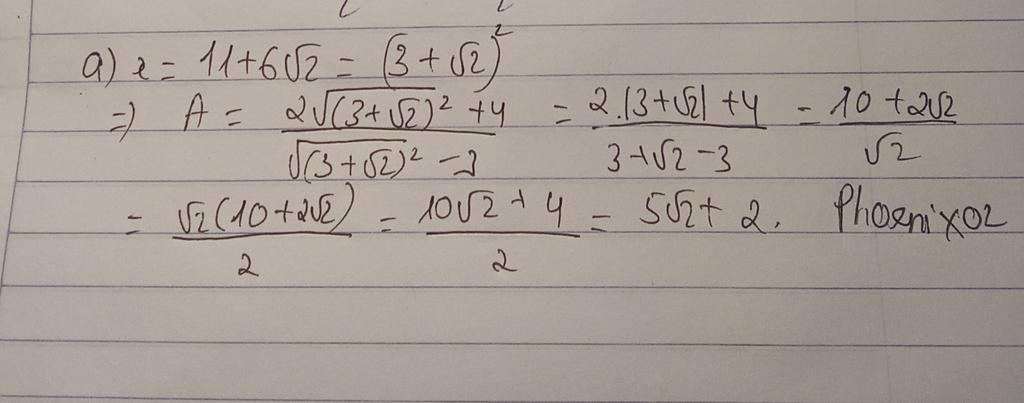 a) x = 11+6√2 = (3+√2)²
=> A = (2√((3+√2)²) +4)/(√((3+√2)²) -3) = (2.|3+√2| +4)/(3+√2-3) = (10+2√2)/√2
= (√2(10+2√2))/2 = (10√2+4)/2 = 5√2+ 2. Phoenix02